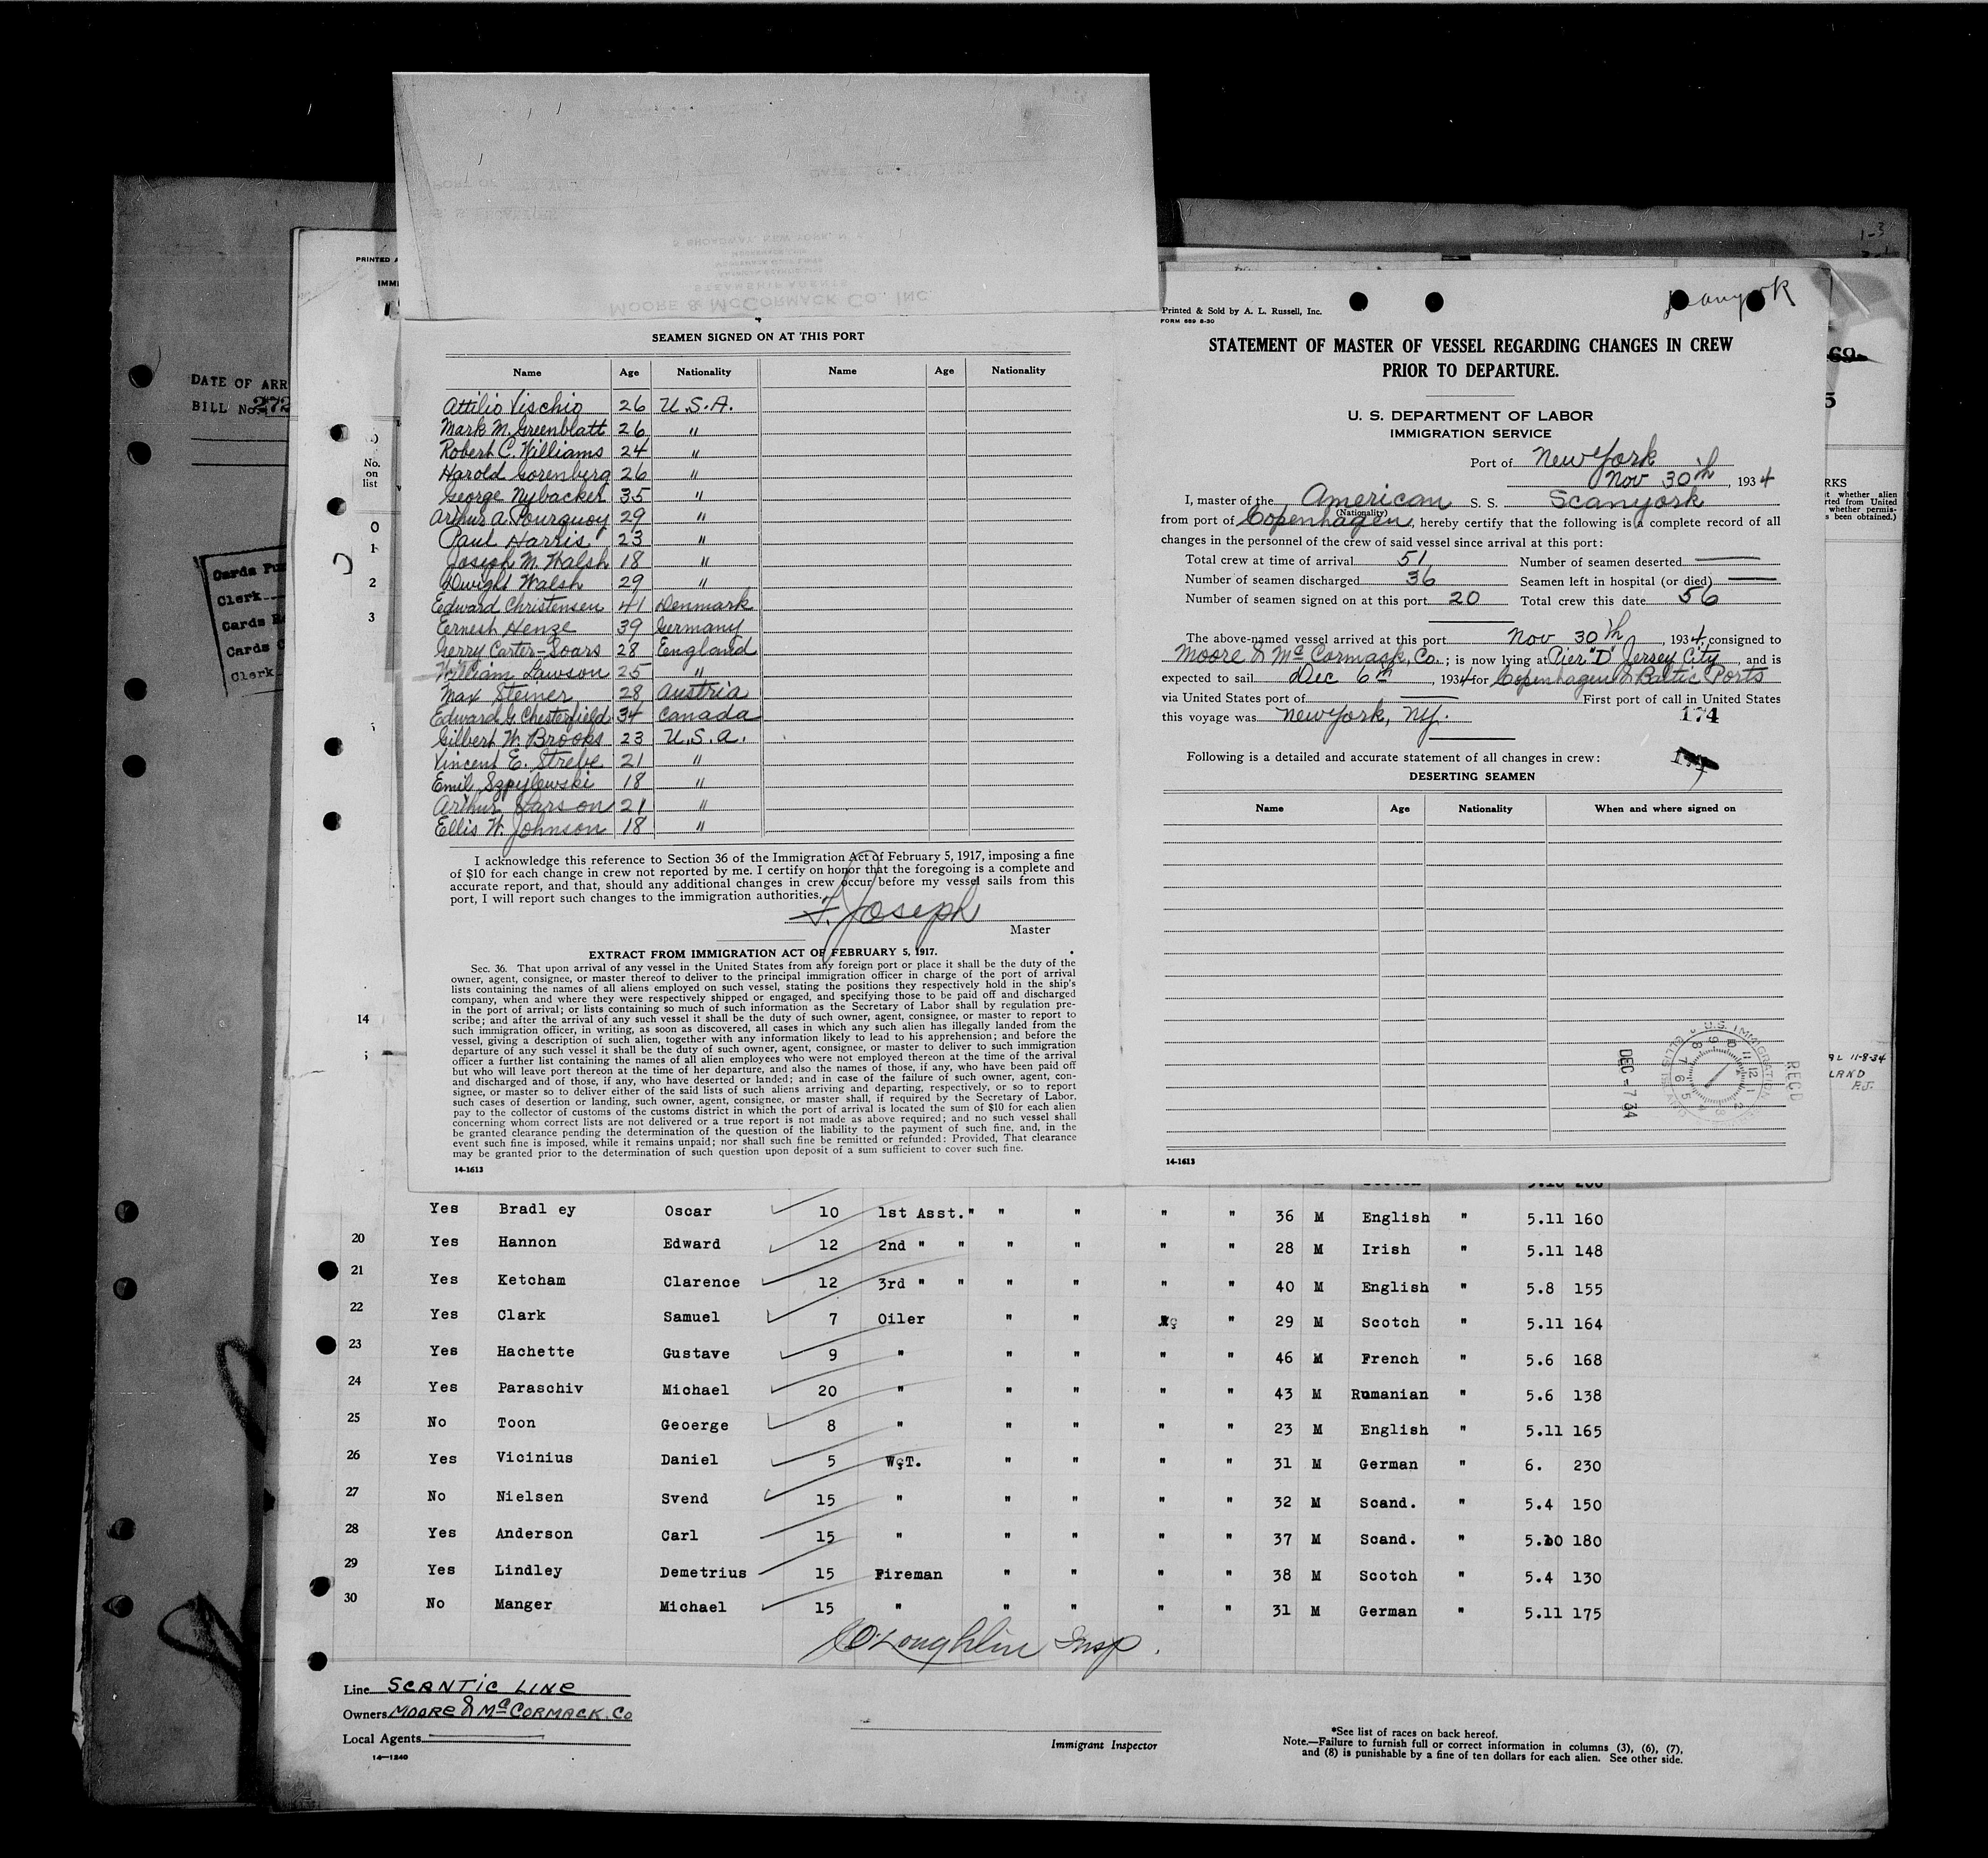 DATE OF ARR
BILL No. 272
Cards Pu
Clerk
Cards
Cards
Clerk
PRINTED
IMMI
No.
on
list
0
1
2
3
14
MOORE & MCCORMACK CO., INC.
STEAMSHIP AGENTS
5 BROADWAY, NEW YORK, N
PORT OF
SEAMEN SIGNED ON AT THIS PORT
Name Age Nationality Name Age Nationality
Attilio Vischio 26 U.S.A.
Mark M. Greenblatt 26 "
Robert C. Williams 24 "
Harold Gorenberg 26 "
George Nybacker 35 "
Arthur A. Pourquoy 29 "
Paul Harris 23 "
Joseph M. Walsh 18 "
Dwight Walsh 29 "
Edward Christensen 41 Denmark
Ernest Henze 39 Germany
Gerry Carter-Soars 28 England
William Lawson 25 "
Max Steiner 28 Austria
Edward G. Chesterfield 34 Canada
Gilbert W. Brooks 23 U.S.A.
Vincent E. Strebe 21 "
Emil Szpylewski 18 "
Arthur Larson 21 "
Ellis W. Johnson 18 "
I acknowledge this reference to Section 36 of the Immigration Act of February 5, 1917, imposing a fine
of $10 for each change in crew not reported by me. I certify on honor that the foregoing is a complete and
accurate report, and that, should any additional changes in crew occur before my vessel sails from this
port, I will report such changes to the immigration authorities.
F. Joseph
Master
EXTRACT FROM IMMIGRATION ACT OF FEBRUARY 5, 1917.
Sec. 36. That upon arrival of any vessel in the United States from any foreign port or place it shall be the duty of the
owner, agent, consignee, or master thereof to deliver to the principal immigration officer in charge of the port of arrival
lists containing the names of all aliens employed on such vessel, stating the positions they respectively hold in the ship's
company, when and where they were respectively shipped or engaged, and specifying those to be paid off and discharged
in the port of arrival; or lists containing so much of such information as the Secretary of Labor shall by regulation pre-
scribe; and after the arrival of any such vessel it shall be the duty of such owner, agent, consignee, or master to report to
such immigration officer, in writing, as soon as discovered, all cases in which any such alien has illegally landed from the
vessel, giving a description of such alien, together with any information likely to lead to his apprehension; and before the
departure of any such vessel it shall be the duty of such owner, agent, consignee, or master to deliver to such immigration
officer a further list containing the names of all alien employees who were not employed thereon at the time of the arrival
but who will leave port thereon at the time of her departure, and also the names of those, if any, who have been paid off
and discharged and of those, if any, who have deserted or landed; and in case of the failure of such owner, agent, con-
signee, or master so to deliver either of the said lists of such aliens arriving and departing, respectively, or so to report
such cases of desertion or landing, such owner, agent, consignee, or master shall, if required by the Secretary of Labor,
pay to the collector of customs of the customs district in which the port of arrival is located the sum of $10 for each alien
concerning whom correct lists are not delivered or a true report is not made as above required; and no such vessel shall
be granted clearance pending the determination of the question of the liability to the payment of such fine, and, in the
event such fine is imposed, while it remains unpaid; nor shall such fine be remitted or refunded: Provided, That clearance
may be granted prior to the determination of such question upon deposit of a sum sufficient to cover such fine.
14-1613
Printed & Sold by A. L. Russell, Inc.
FORM 689 6-30
STATEMENT OF MASTER OF VESSEL REGARDING CHANGES IN CREW
PRIOR TO DEPARTURE.
U. S. DEPARTMENT OF LABOR
IMMIGRATION SERVICE
Port of New York
Nov 30th, 1934
I, master of the American S. S. Scanyork
(Nationality)
from port of Copenhagen, hereby certify that the following is a complete record of all
changes in the personnel of the crew of said vessel since arrival at this port:
Total crew at time of arrival 51 Number of seamen deserted
Number of seamen discharged 36 Seamen left in hospital (or died)
Number of seamen signed on at this port 20 Total crew this date 56
The above-named vessel arrived at this port Nov 30th, 1934, consigned to
Moore & McCormack, Co.; is now lying at Pier "D" Jersey City, and is
expected to sail Dec 6th, 1934 for Copenhagen & Baltic Ports
via United States port of First port of call in United States
this voyage was New York, NY. 174
Following is a detailed and accurate statement of all changes in crew:
DESERTING SEAMEN
Name Age Nationality When and where signed on
U.S. IMMIGRATION
RECD
DEC -7 34
14-1613
RKS
69
5
11-8-34
LAND
P.J.
Yes Bradl ey Oscar 10 1st Asst." " " " " 36 M English " 5.11 160
20 Yes Hannon Edward 12 2nd " " " " " " 28 M Irish " 5.11 148
21 Yes Ketcham Clarence 12 3rd " " " " " " 40 M English " 5.8 155
22 Yes Clark Samuel 7 Oiler " " " 29 M Scotch " 5.11 164
23 Yes Hachette Gustave 9 " " " " " 46 M French " 5.6 168
24 Yes Paraschiv Michael 20 " " " " " 43 M Rumanian " 5.6 138
25 No Toon Geoerge 8 " " " " " 23 M English " 5.11 165
26 Yes Vicinius Daniel 5 W.T. " " " " 31 M German " 6. 230
27 No Nielsen Svend 15 " " " " " 32 M Scand. " 5.4 150
28 Yes Anderson Carl 15 " " " " " 37 M Scand. " 5.10 180
29 Yes Lindley Demetrius 15 Fireman " " " " 38 M Scotch " 5.4 130
30 No Manger Michael 15 " " " " " 31 M German " 5.11 175
O'Loughlin Insp.
Line SCANTIC LINE
Owners MOORE & McCORMACK. Co
Local Agents
14-1240
Immigrant Inspector
*See list of races on back hereof.
Note.—Failure to furnish full or correct information in columns (3), (6), (7),
and (8) is punishable by a fine of ten dollars for each alien. See other side.